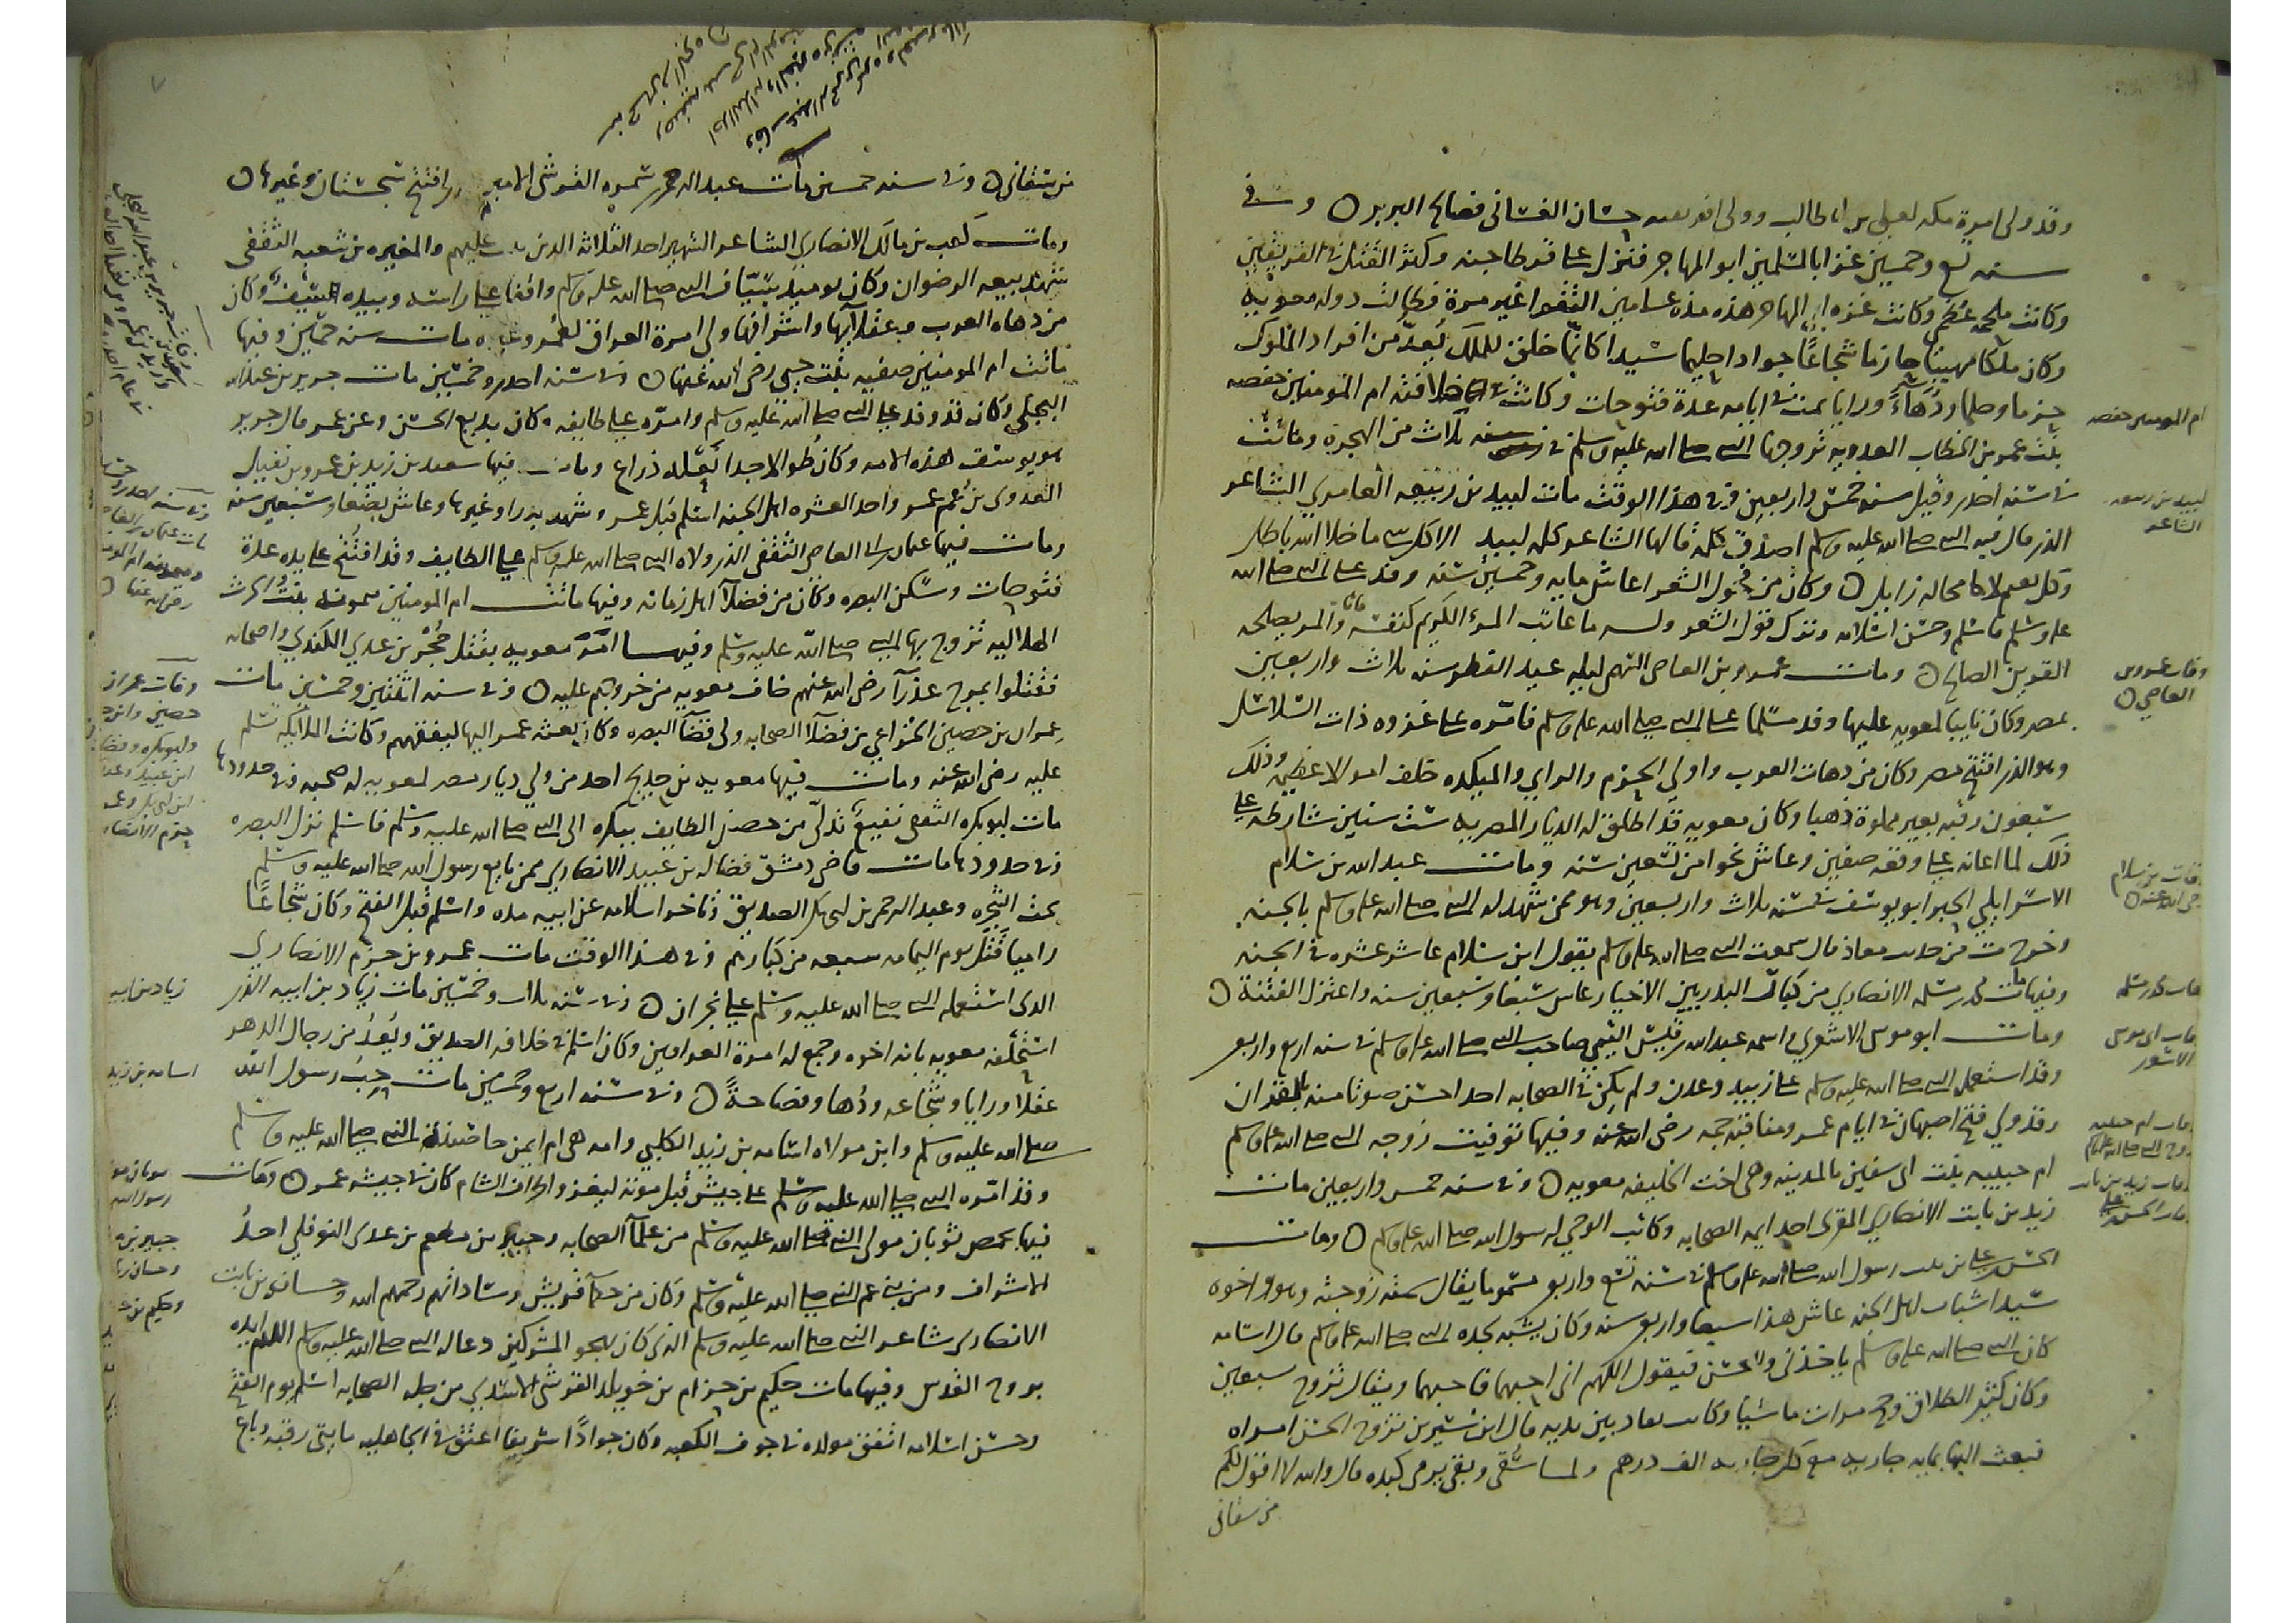 وقد ولى امرة مكه لعلى بن ابى طالب وولى افريقيه حسان الغسانى فصالح البربر وفى
سنه تسع وخمسين غزا بالمسلمين ابو المهاجر فنزل على قرطاجنه وكثر القتل فى الفريقين
وكانت ملحمه عظمى وكانت غزوه ابى المهاجر هذه مده عامين التقوا غير مرة فطالت دوله معويه
وكان ملكا مهيبا حازما شجاعا جوادا حليما سيدا كانما خلق للملك يعد من افراد الملوك
حزما وحلما ودهاءً ورايا تمت فى ايامه عدة فتوحات وكانت فى خلافته ام المومنين حفصه
بنت عمر بن الخطاب العدويه تزوجها النبى صلى الله عليه وسلم فى سنه ثلاث من الهجرة وماتت
فى سنه احدى وقيل سنه خمس واربعين وفى هذا الوقت مات لبيد بن ربيعه العامري الشاعر
الذى قال فيه النبى صلى الله عليه وسلم اصدق كلمه قالها الشاعر كلمه لبيد الا كل شى ما خلا الله باطل
وكل نعيم لا محاله زايل وكان من فحول الشعرا عاش مايه وخمسين سنه وفد على النبى صلى الله
عليه وسلم فاسلم وحسن اسلامه وترك قول الشعر وله ما عاتب المرء الكريم كنفسه والمرء يصلحه
القرين الصالح ومات عمرو بن العاص السهمى ليله عيد الفطر سنه ثلاث واربعين
بمصر وكان نايبا لمعويه عليها وفد مسلما على النبى صلى الله عليه وسلم فامره على غزوه ذات السلاسل
وهو الذى افتتح مصر وكان من دهات العرب واولى الحزم والراي والمكيده خلف اموالا عظيمه وذلك
سبعون رقبه بعير مملوة ذهبا وكان معويه قد اطلق له الديار المصريه ست سنين شارطه على
ذلك لما اعانه على وقعه صفين وعاش نحوا من تسعين سنه ومات عبد الله بن سلام
الاسرايلي الحبر ابو يوسف فى سنه ثلاث واربعين وهو ممن شهد له النبى صلى الله عليه وسلم بالجنه
وخرج ت من حديث معاذ قال سمعت النبى صلى الله عليه وسلم يقول ابن سلام عاشر عشره فى الجنه
وفيها مات محمد بن مسلمه الانصاري من كبار البدريين الاخيار عاش سبعا وسبعين سنه واعتزل الفتنة
ومات ابو موسى الاشعري واسمه عبد الله بن قيس اليمنى صاحب النبى صلى الله عليه وسلم فى سنه اربع واربع
وقد استعمله النبى صلى الله عليه وسلم على زبيد وعدن ولم يكن فى الصحابه احد احسن صوتا منه بالقران
وقد ولي فتح اصبهان فى ايام عمر ومناقبه جمه رضى الله عنه وفيها توفيت زوجه النبى صلى الله عليه وسلم
ام حبيبه بنت ابى سفين بالمدينه وهى اخت الخليفه معويه وفى سنه خمس واربعين مات
زيد بن ثابت الانصاري المقرى احد ايمه الصحابه وكاتب الوحي لرسول الله صلى الله عليه وسلم ومات
الحسن بن على بن بنت رسول الله صلى الله عليه وسلم فى سنه تسع واربع مسموما يقال سمته زوجته وهو واخوه
سيدا شباب اهل الجنه عاش هذا سبعا واربع سنه وكان يشبه بجده النبى صلى الله عليه وسلم قال اسامه
كان النبى صلى الله عليه وسلم ياخذنى والحسن فيقول اللهم انى احبهما فاحبهما ويقال تزوج سبعين
وكان كثير الطلاق وحج مرات ماشيا وكانت تقاد بين يديه قال ابن سيرين تزوج الحسن امراه
فبعث اليها بمايه جاريه مع كل جاريه الف درهم ولما سقى وبقى يرمى كبده قال والله لا اقول لكم
من سقانى
ام المومنين حفصه
لبيد بن ربيعه
الشاعر
وفات عمرو بن
العاصي
وفات بن سلام
رضى الله عنه
وفات محمد بن مسلمه
وفات ابى موسى
الاشعرى
وفات ام حبيبه
زوج النبى صلى الله عليه وسلم
وفات زيد بن ثابت
وفات الحسن بن على
من سقانى وفى سنه خمسين مات عبد الرحمن بن سمره القرشى الامير الذى افتتح سجستان وغيرها
ومات كعب بن مالك الانصاري الشاعر الشهير احد الثلاثه الذين تيب عليهم والمغيره بن شعبه الثقفى
شهد بيعه الرضوان وكان يوميذ سيافا للنبى صلى الله عليه وسلم واقفا على راسه وبيده السيف وكان
من دهاه العرب وعقلايها واشرافها ولى امرة العراق لعمر وغيره مات سنه خمسين وفيها
ماتت ام المومنين صفيه بنت حيى رضى الله عنها وفى سنه احدى وخمسين مات جرير بن عبد الله
البجلي وكان قد وفد على النبى صلى الله عليه وسلم وامره على طايفه وكان بديع الحسن وعن عمر قال جرير
هو يوسف هذه الامه وكان طوالا جدا نعله ذراع ومات فيها سعيد بن زيد بن عمرو بن نفيل
العدوى بن عم عمر واحد العشره اهل الجنه اسلم قبل عمر وشهد بدرا وغيرها وعاش بضعا وسبعين سنه
ومات فيها عثمان بن ابى العاص الثقفى الذى ولاه النبى صلى الله عليه وسلم على الطايف وقد افتتح على يده عدة
فتوحات وسكن البصره وكان من فضلآ اهل زمانه وفيها ماتت ام المومنين ميمونه بنت الحرث
الهلاليه تزوج بها النبى صلى الله عليه وسلم وفيها امر معويه بقتل حجر بن عدي الكندي واصحابه
فقتلوا بمرج عذرآ رضى الله عنهم خاف معويه من خروجهم عليه وفى سنه اثنتين وخمسين مات
عمران بن حصين الخزاعي من فضلآ الصحابه ولى قضآ البصره وكان بعثه عمر اليها ليفقههم وكانت الملايكه تسلم
عليه رضى الله عنه ومات فيها معويه بن حديج احد من ولي ديار مصر لمعويه له صحبه وفى حدودها
مات ابو بكره الثقفى نفيع تدلى من حصن الطايف ببكره الى النبى صلى الله عليه وسلم فاسلم نزل البصره
وفى حدودها مات قاضى دمشق فضاله بن عبيد الانصارى ممن بايع رسول الله صلى الله عليه وسلم
تحت الشجره وعبد الرحمن بن ابى بكر الصديق وتاخر اسلامه عن ابيه مده واسلم قبل الفتح وكان شجاعًا
راميا قتل يوم اليمامه سبعه من كبارهم وفى هذا الوقت مات عمرو بن حزم الانصاري
الذى استعمله النبى صلى الله عليه وسلم على نجران وفى سنه ثلاث وخمسين مات زياد بن ابيه الذى
استلحقه معويه بانه اخوه وجمع له امرة العراقين وكان اسلم فى خلافه الصديق ويُعدُّ من رجال الدهر
عقلا ورايا وشجاعه ودُها وفصاحةً وفى سنه اربع وخمسين مات حِبُّ رسول الله
صلى الله عليه وسلم وابن مولاه اسامه بن زيد الكلبي وامه هى ام ايمن حاضنة النبى صلى الله عليه وسلم
وقد امره النبى صلى الله عليه وسلم على جيش قبل موته ليغزو اطراف الشام كان فى جيشه عمر ومات
فيها بحمص ثوبان مولى النبى صلى الله عليه وسلم من علمآ الصحابه وجبير بن مطعم بن عدى النوفلي احدُ
الاشراف ومن بنى عم النبى صلى الله عليه وسلم وكان من حلمآ قريش وساداتهم رحمهم الله وحسان بن ثابت
الانصارى شاعر النبى صلى الله عليه وسلم الذى كان يهجو المشركين دعا له النبى صلى الله عليه وسلم اللهم ايده
بروح القدس وفيها مات حكيم بن حزام بن خويلد القرشى الاسدي من جله الصحابه اسلم يوم الفتح
وحسن اسلامه اتفق مولده فى جوف الكعبه وكان جوادًا شريفا اعتق فى الجاهليه مايتى رقبه وباع
وفات عمران
حصين
زياد بن ابيه
اسامه بن زيد